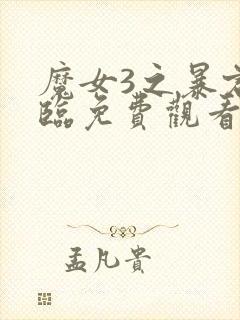 魔女3之暴君
臨免費觀看
孟凡貴